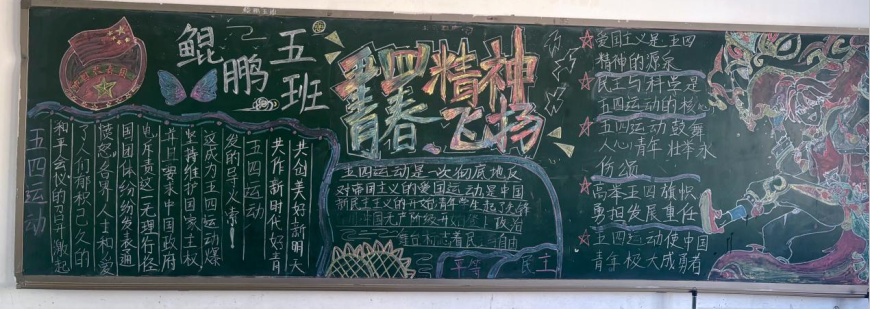 鲲鹏五班
五四精神
青春飞扬
五四运动
和平会议的召开激起
了人们都积已久的
愤怒各界人士和爱
国团体纷纷发表通
电斥责这一无理行径
并且要求中国政府
坚持维护国家主权
这成为五四运动爆
发的导火索!
五四运动
共作新时代好青
共创美好新明天
五四运动是一次彻底地反
对帝国主义的爱国运动是中国
新民主主义的开始青年学生起了先锋
无产阶级开始
政治
自由
平等
民主
☆爱国主义是五四
精神的源泉
☆民主与科学是
五四运动的核心
☆五四运动鼓舞
人心青年壮学永
传颂
☆高举五四旗帜
勇担发展重任
☆五四运动使中国
青年极大成勇者